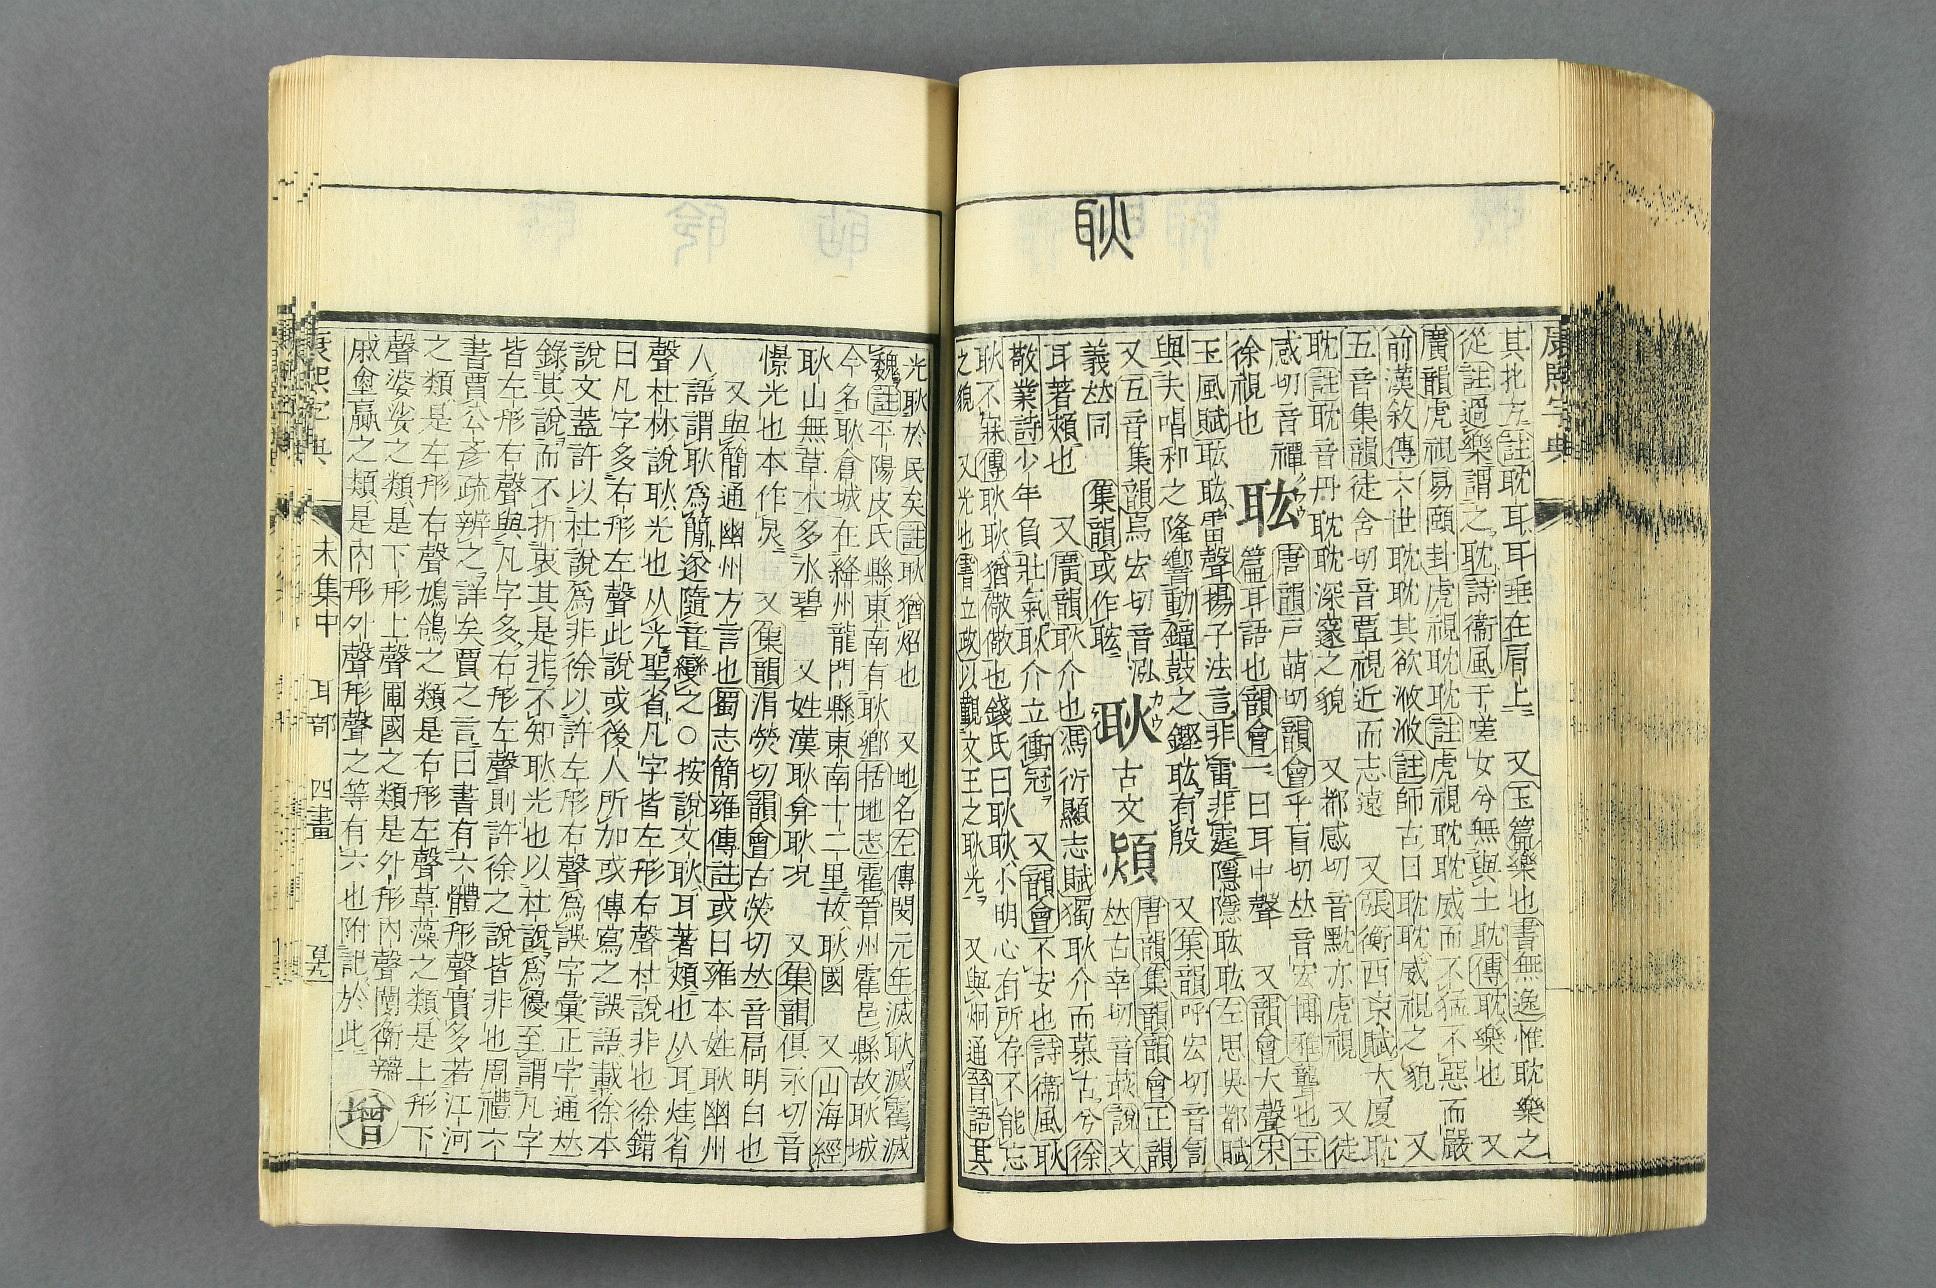 耿
康熙字典
其北方註耽耳耳垂在肩上 又玉篇樂也書無逸惟耽樂之
從註過樂謂之耽詩衞風于嗟女兮無與士耽傳耽樂也 又
廣韻虎視易頤卦虎視耽耽註虎視耽耽威而不猛不惡而嚴
前漢敘傳六世耽耽其欲浟浟註師古曰耽耽威視之貌 又
五音集韻徒含切音覃視近而志遠 又張衡西京賦大廈耽
耽註耽音丹耽耽深邃之貌 又都感切音黕亦虎視 又徒
感切音禫
徐視也
耾 唐韻戸萌切韻會乎盲切𠀤音宏博雅聾也玉
篇耳語也韻會一曰耳中聲 又韻會大聲宋
玉風賦耾耾雷聲揚子法言非雷非霆隱隱耾耾左思吳都賦
與夫唱和之隆響動鐘鼓之鏗耾有殷 又集韻呼宏切音訇
又五音集韻烏宏切音泓
義𠀤同 集韻或作
耿 カウ 古文熲 唐韻集韻韻會正韻
𠀤古幸切音 說文
耳著頰也 又廣韻耿介也馮衍顯志賦獨耿介而慕古兮徐
敬業詩少年負壯氣耿介立衝冠 又韻會不安也詩衞風耿
耿不寐傳耿耿猶儆儆也錢氏曰耿耿小明心有所存不能忘
之貌 又光也書立政以覲文王之耿光 又與炯通晉語其
光耿於民矣註耿猶炤也 又地名左傳閔元年滅耿滅霍滅
魏註平陽皮氏縣東南有耿鄉括地志霍晉州霍邑縣故耿城
今名耿倉城在絳州龍門縣東南十二里故耿國 又山海經
耿山無草木多水碧 又姓漢耿弇耿况 又集韻俱永切音
憬光也本作炅 又集韻涓熒切韻會古熒切𠀤音扃明白也
又與簡通幽州方言也蜀志簡雍傳註或曰雍本姓耿幽州
人語謂耿爲簡遂隨音變之○按說文耿耳著頰也从耳烓省
聲杜林說耿光也从光聖省凡字皆左形右聲杜說非也徐鍇
曰凡字多右形左聲此說或後人所加或傳寫之誤語載徐本
說文蓋許以杜說爲非徐以許左形右聲爲誤字彙正字通𠀤
錄其說而不折衷其是非不知耿光也以杜說爲優至謂凡字
皆左形右聲與凡字多右形左聲則許徐之說皆非也周禮六
書賈公彥疏辨之詳矣賈之言曰書有六體形聲實多若江河
之類是左形右聲鳩鴿之類是右形左聲草藻之類是上形下
聲婆娑之類是下形上聲圃國之類是外形內聲闌衡辯
之類是內形外聲形聲之等有六也附記於此 增
康熙字典 未集中 耳部 四畫